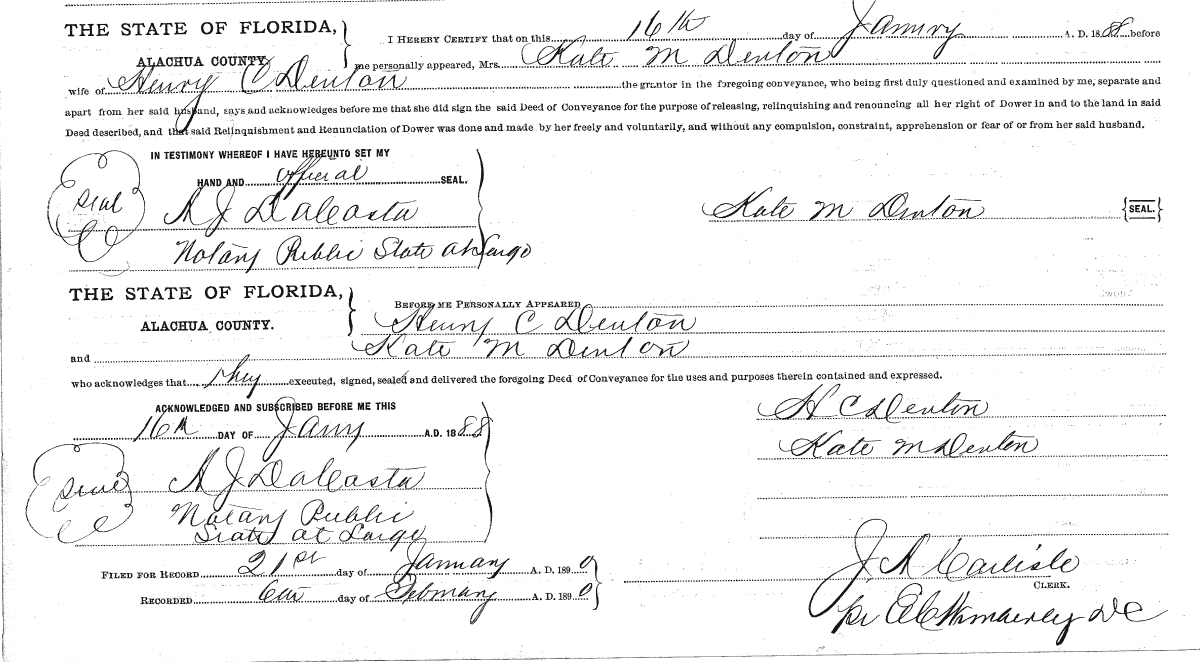 THE STATE OF FLORIDA,
ALACHUA COUNTY.
I HEREBY CERTIFY that on this 16th day of Janury A. D. 1888 before
me personally appeared, Mrs. Kate M Denton
wife of Henry C Denton the grantor in the foregoing conveyance, who being first duly questioned and examined by me, separate and
apart from her said husband, says and acknowledges before me that she did sign the said Deed of Conveyance for the purpose of releasing, relinquishing and renouncing all her right of Dower in and to the land in said
Deed described, and that said Relinquishment and Renunciation of Dower was done and made by her freely and voluntarily, and without any compulsion, constraint, apprehension or fear of or from her said husband.
IN TESTIMONY WHEREOF I HAVE HEREUNTO SET MY
HAND AND official SEAL.
Seal
A J DaCosta
Kate M Denton {SEAL.}
Notary Public State at Largo
THE STATE OF FLORIDA,
ALACHUA COUNTY.
BEFORE ME PERSONALLY APPEARED
Henry C Denton
and Kate M Denton
who acknowledges that they executed, signed, sealed and delivered the foregoing Deed of Conveyance for the uses and purposes therein contained and expressed.
ACKNOWLEDGED AND SUBSCRIBED BEFORE ME THIS
16th DAY OF Jany A.D. 1888
H C Denton
Kate M Denton
Seal
A J DaCosta
Notary Public
State at Large
FILED FOR RECORD 21st day of January A. D. 1890
RECORDED 6th day of February A. D. 1890
J A Carlisle
CLERK.
pr DC